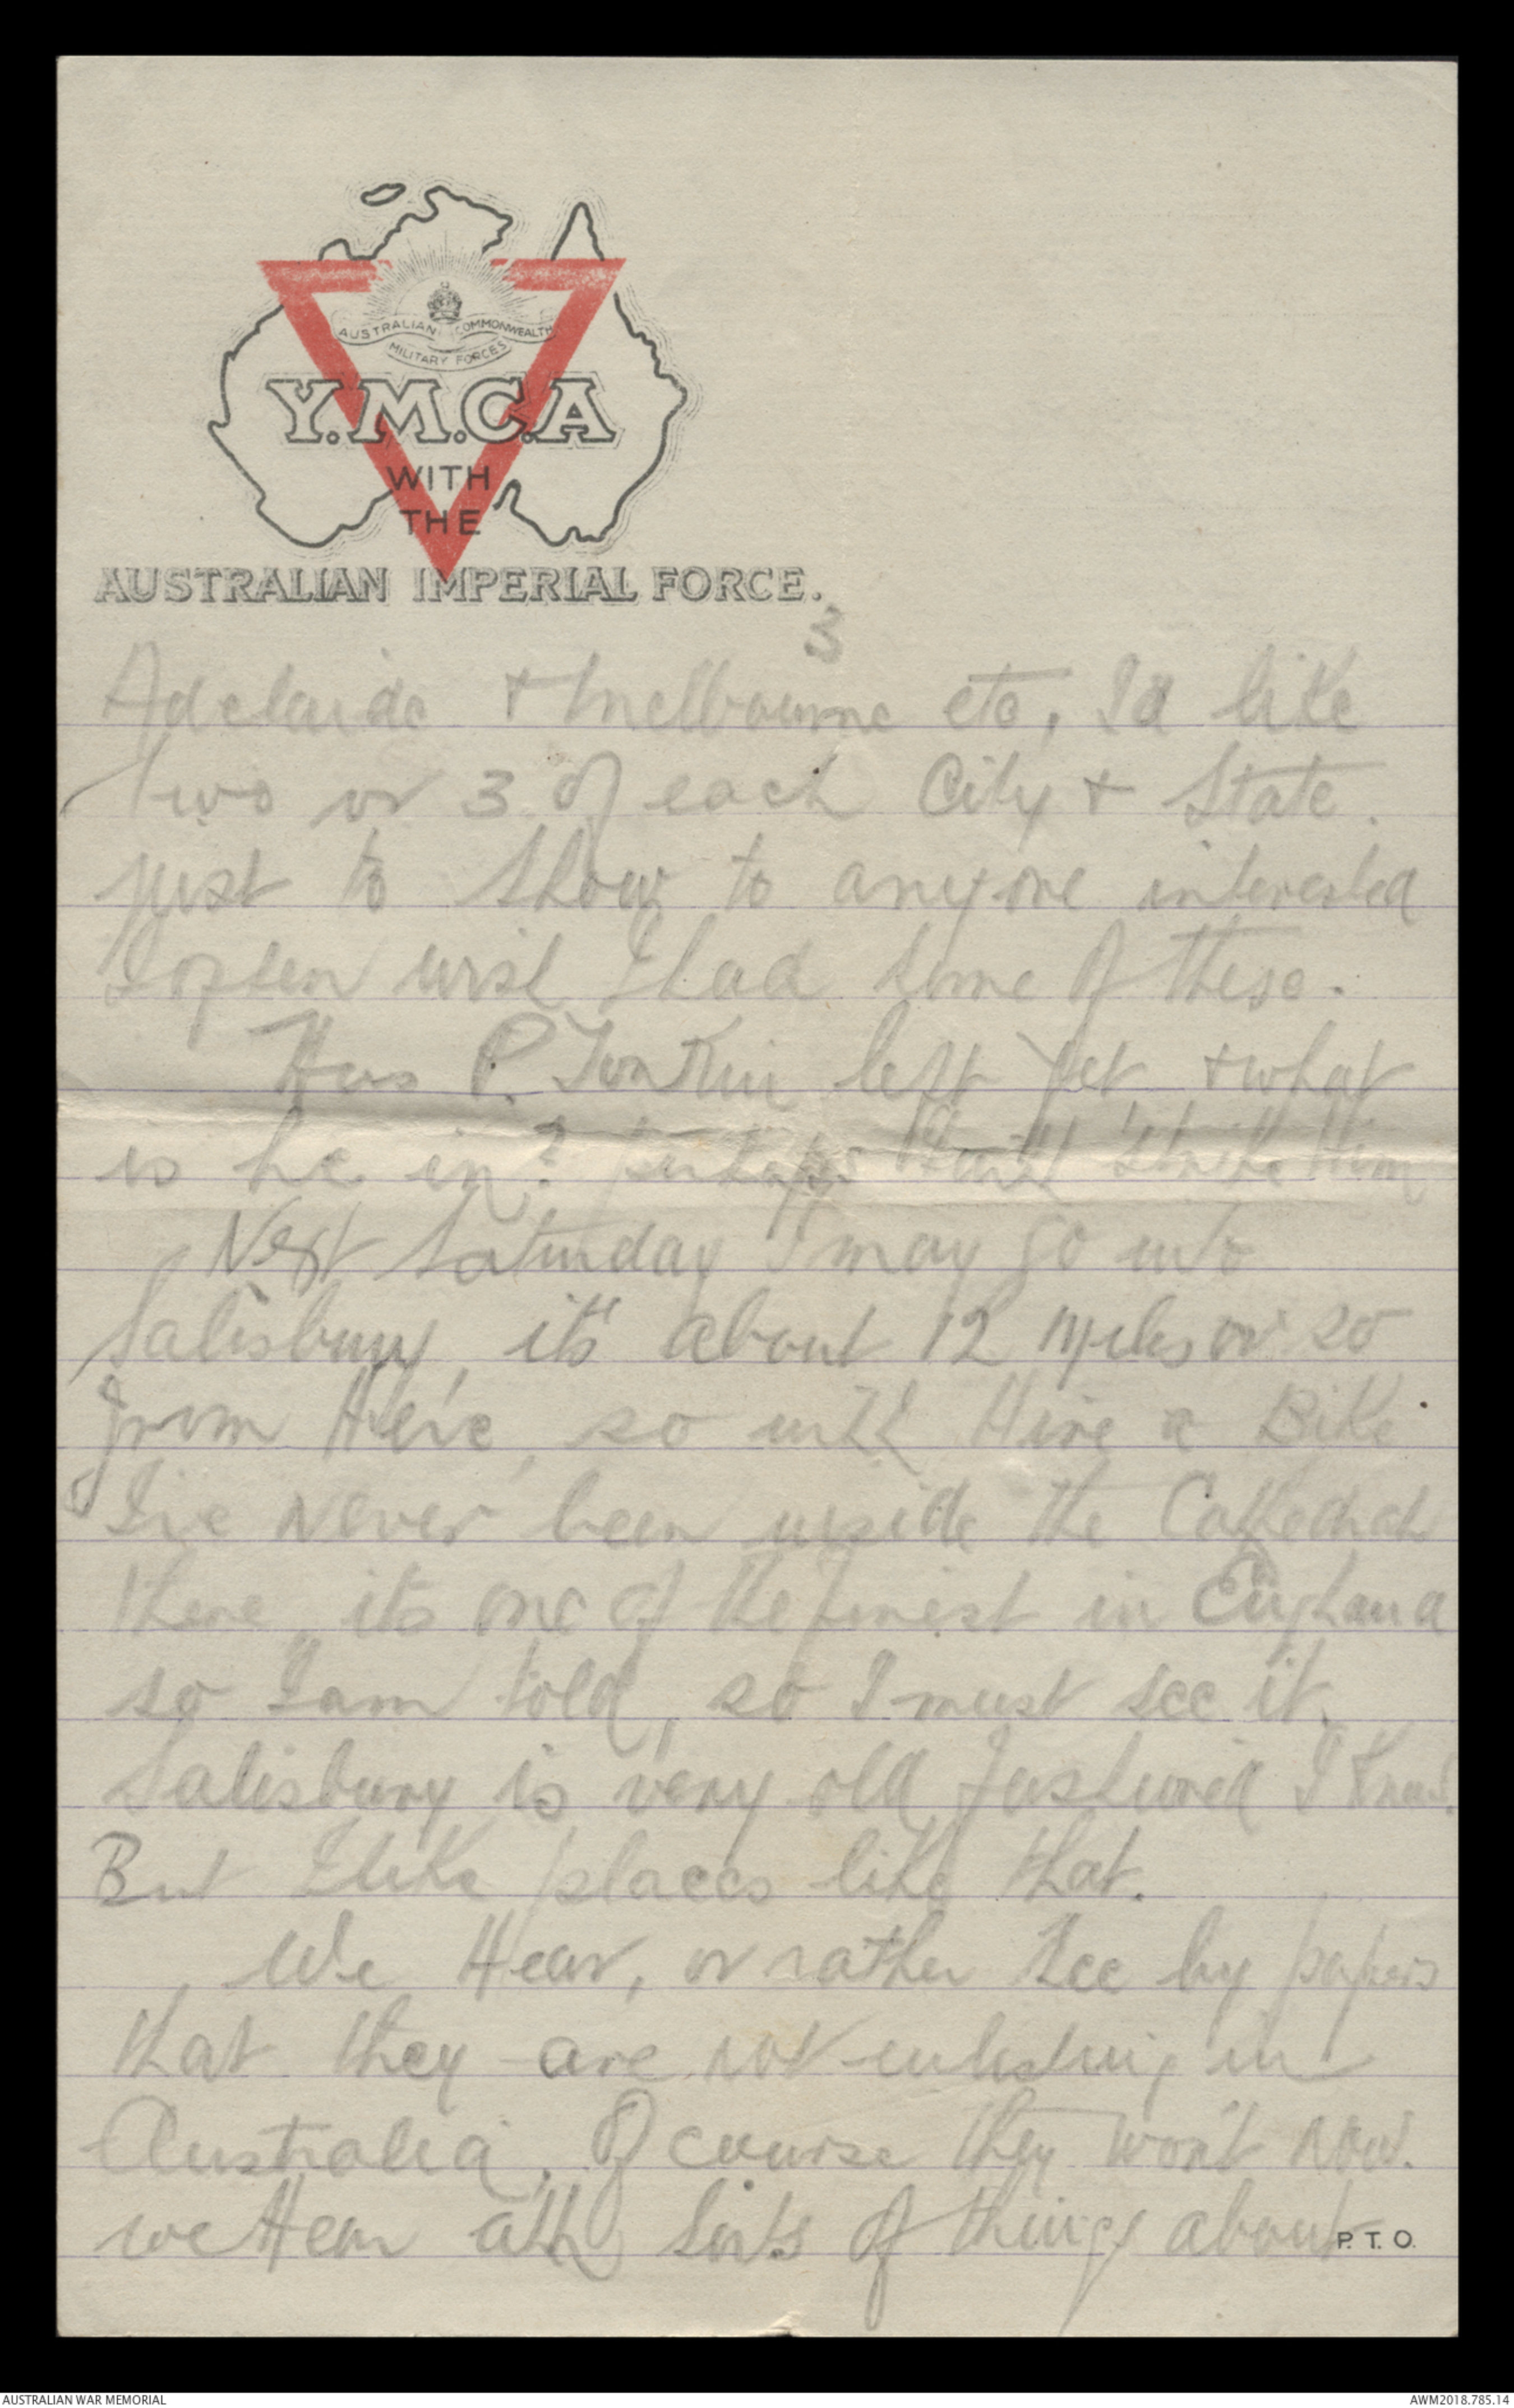 AUSTRALIAN COMMONWEALTH
MILITARY FORCES
Y.M.C.A
WITH
THE
AUSTRALIAN IMPERIAL FORCE.
3
Adelaide + Melbourne etc, Id like
two or 3 of each City + State.
just to show to anyone interested
I often wish I had some of these.
Has P. Tonkin left yet + what
is he in? perhaps I will strike Him
Next Saturday I may go into
Salisbury, it's about 12 Miles or so
from Here, so will Hire a Bike
I've never been inside the Cathedral
there, its one of the finest in England
so I am told, so I must see it.
Salisbury is very old fashioned I know.
But I like places like that.
We Hear, or rather see by papers
that they are not enlisting in
Australia, Of course they won't now.
we Hear all sorts of things about
P. T. O.
AUSTRALIAN WAR MEMORIAL
AWM2018.785.14